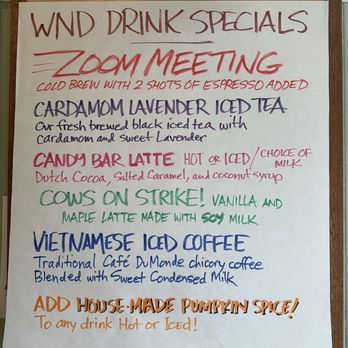 WND DRINK SPECIALS
ZOOM MEETING
COLD BREW WITH 2 SHOTS OF ESPRESSO ADDED
CARDAMOM LAVENDER ICED TEA
Our fresh brewed black iced tea with
cardamom and sweet Lavender
CANDY BAR LATTE HOT OR ICED/CHOICE OF MILK
Dutch Cocoa, Salted Caramel, and coconut syrup
COWS ON STRIKE! VANILLA AND
MAPLE LATTE MADE WITH SOY MILK
VIETNAMESE ICED COFFEE
Traditional Café DuMonde chicory coffee
Blended with Sweet Condensed Milk
ADD HOUSE-MADE PUMPKIN SPICE!
To any drink Hot or Iced!